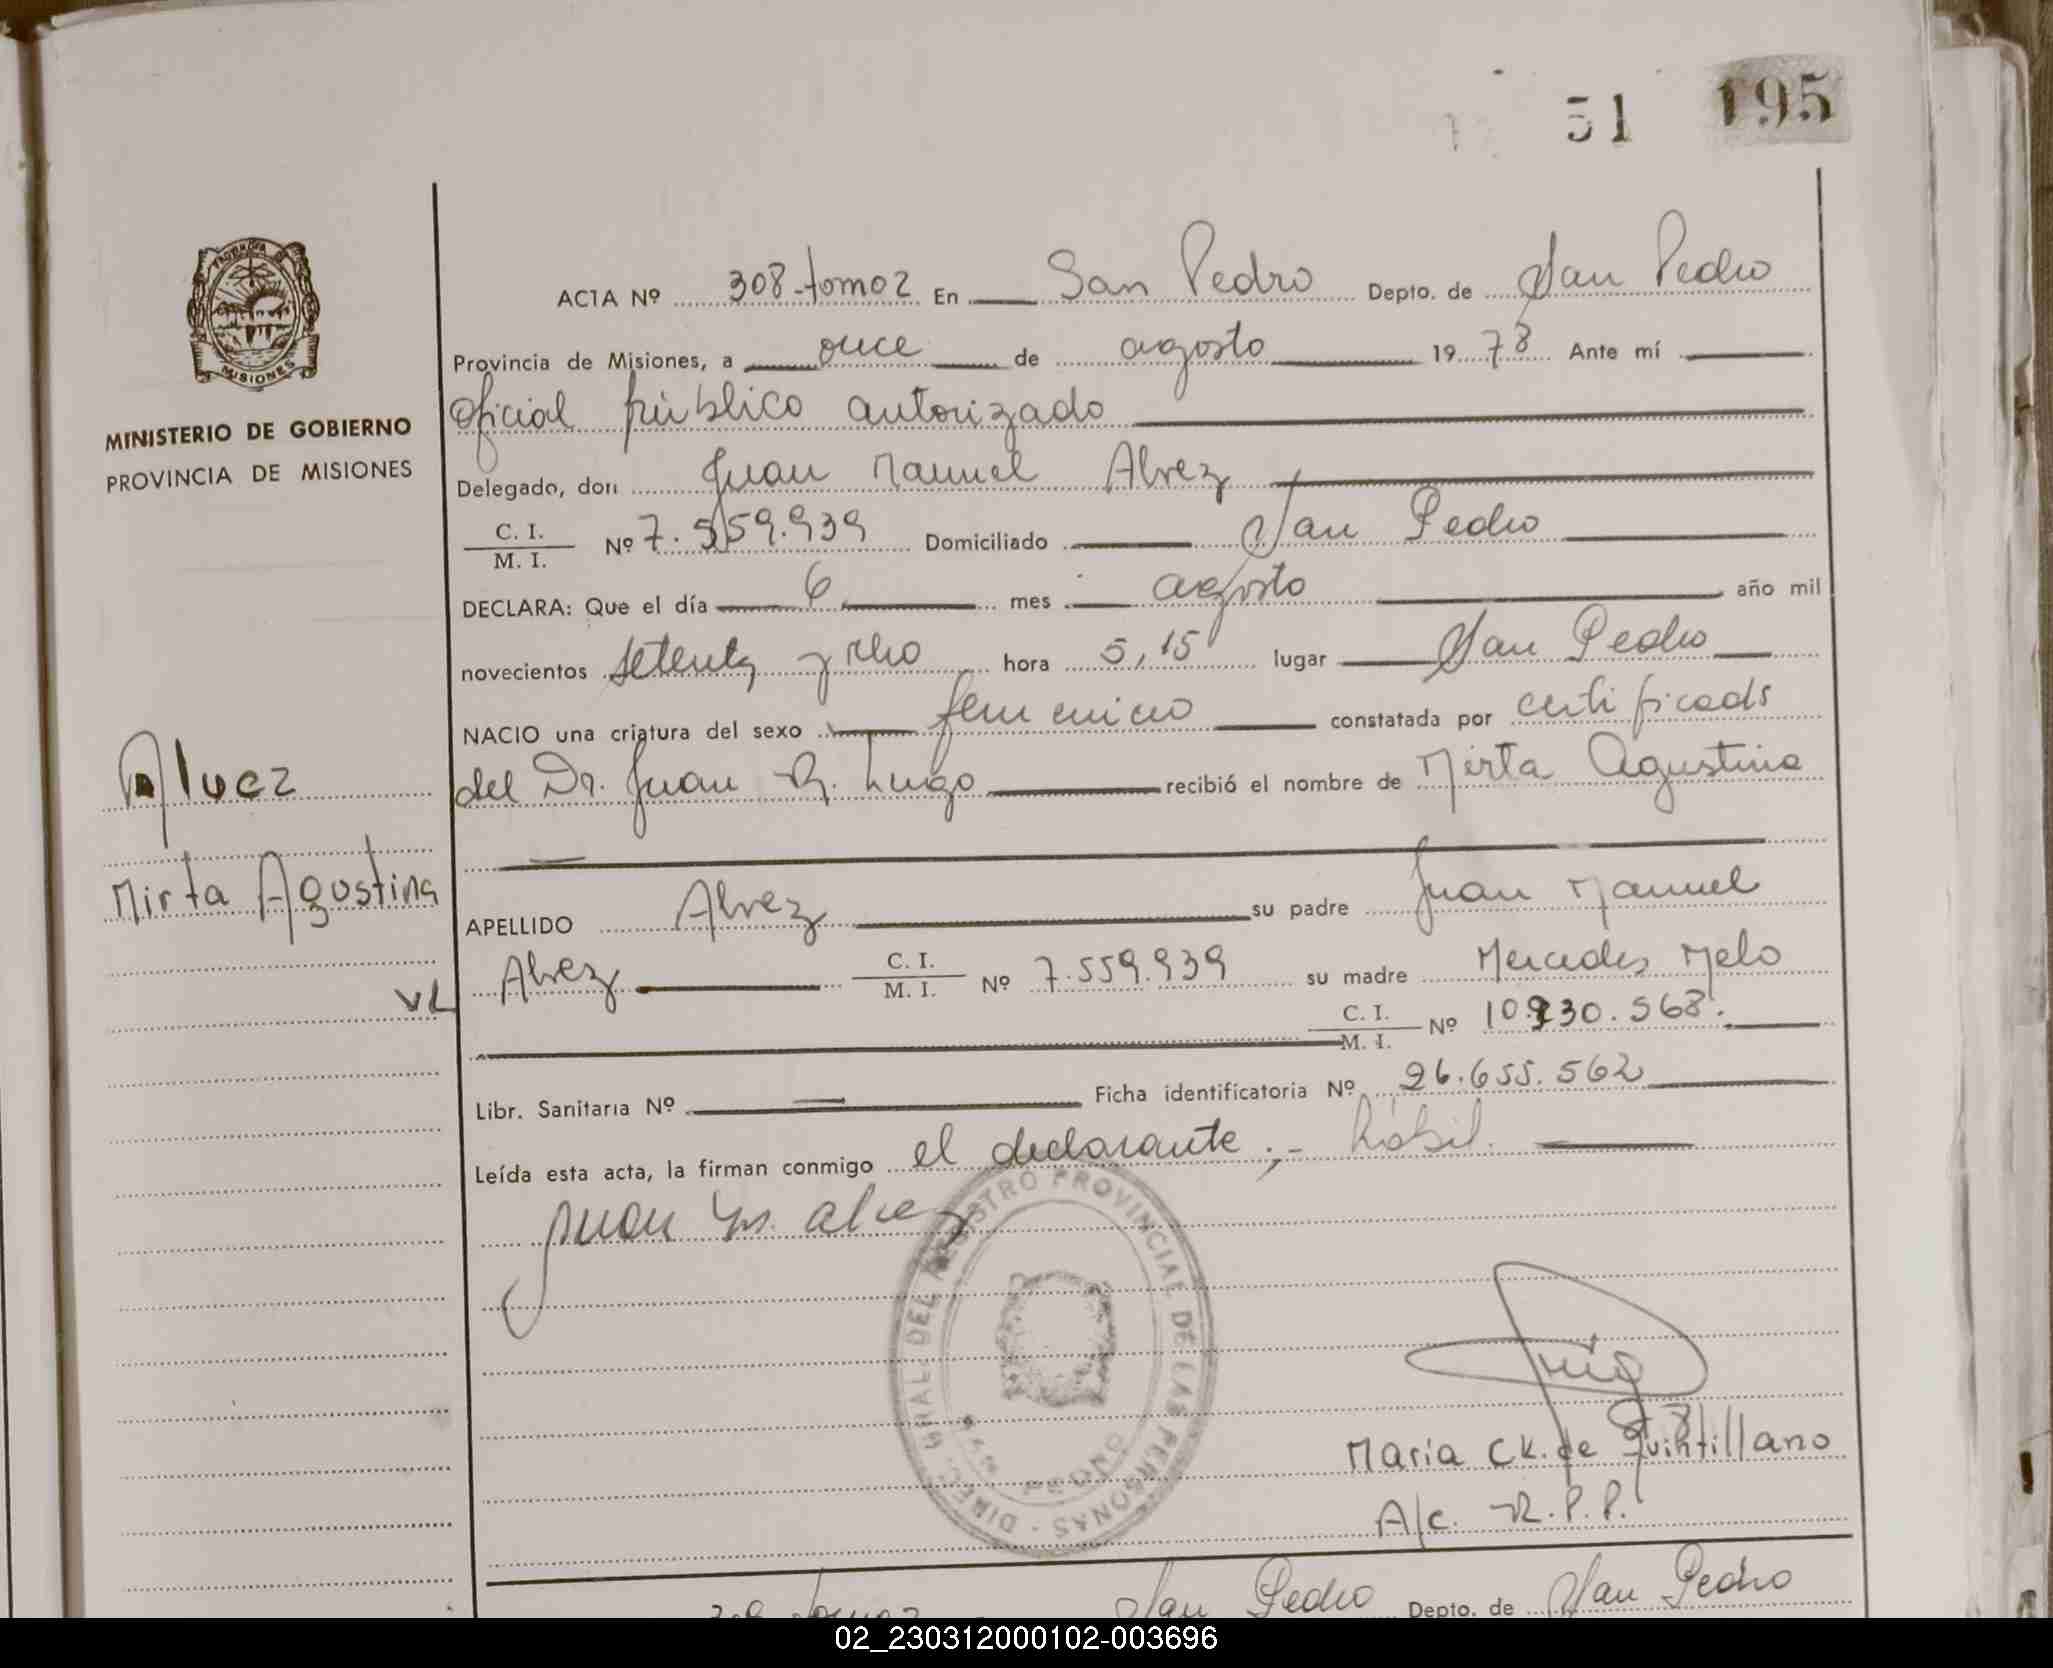 51 195
PROVINCIA DE
MISIONES
MINISTERIO DE GOBIERNO
PROVINCIA DE MISIONES
Alvez
Mirta Agostina
VL
ACTA Nº 308-tomo2 En San Pedro Depto. de San Pedro
Provincia de Misiones, a once de agosto 1978 Ante mí
oficial público autorizado
Delegado, don Juan Manuel Alvez
C. I.
M. I. Nº 7.559.939 Domiciliado San Pedro
DECLARA: Que el día 6 mes agosto año mil
novecientos setenta y ocho hora 5,15 lugar San Pedro
NACIO una criatura del sexo femenino constatada por certificado
del Dr. Juan R. Lugo recibió el nombre de Mirta Agustina
APELLIDO Alvez su padre Juan Manuel
Alvez C. I.
M. I. Nº 7.559.939 su madre Mercedes Melo
C. I.
M. I. Nº 10.930.568.
Libr. Sanitaria Nº — Ficha identificatoria Nº 26.655.562
Leída esta acta, la firman conmigo el declarante ;- hábil.
Juan M. Alvez
DIREC. GRAL. DEL REGISTRO PROVINCIAL DE LAS PERSONAS
María CK. de Quintillano
A/c. R.P.P.
San Pedro Depto. de San Pedro
02_230312000102-003696